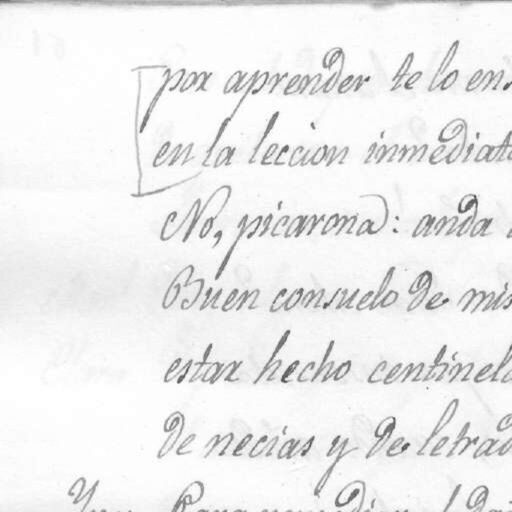 por aprender te lo ens
en la leccion inmediata
No, picarona: anda
Buen consuelo de mis
estar hecho centinela
de necias y de letrad